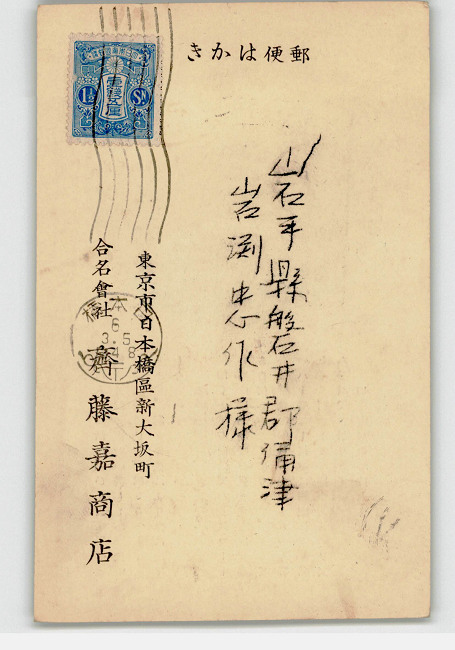 郵便はかき
岩手縣磐井郡 津
岩渕忠作様
東京市日本橋區新大坂町
合名會社 齋藤嘉商店
壹錢五厘
1½ Sn
本
橋
6
3. 5
4 8